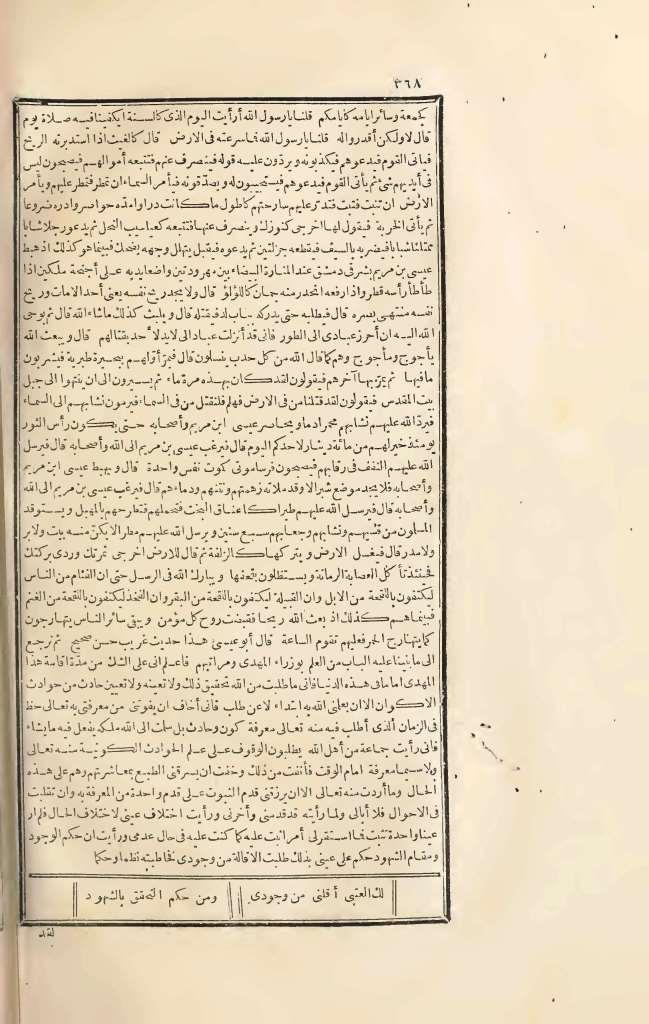 ٣٦٨
كجمعة وسائر ايامه كايامكم قلنا يا رسول الله أرأيت اليوم الذى كالسنة ايكفينا فيه صلاة يوم
قال لا ولكن أقدروا له قلنا يا رسول الله فما سرعته فى الارض قال كالغيث اذا استدبرته الريح
فيأتى القوم فيدعوهم فيكذبونه ويردّون عليه قوله فينصرف عنهم فتتبعه أموالهم فيصبحون ليس
فى أيديهم شئ ثم يأتى القوم فيدعوهم فيستجيبون له ويصدّقونه فيأمر السماء ان تمطر فتمطر عليهم ويأمر
الارض ان تنبت فتنبت فتروح عليهم سارحتهم كاطول ما كانت درا وامدّه خواصر وادره ضروعا
ثم يأتى الخربة فيقول لها اخرجى كنوزك وينصرف عنها فتتبعه كيعاسيب النحل ثم يدعو رجلا شابا
ممتلئا شبابا فيضربه بالسيف فيقطعه جزلتين ثم يدعوه فيقبل يتهلل وجهه يضحك فبينما هو كذلك اذ هبط
عيسى بن مريم بشرقى دمشق عند المنارة البيضاء بين مهرودتين واضعا يديه على أجنحة ملكين اذا
طأطأ رأسه قطر واذا رفعه انحدر منه جمان كاللؤلؤ قال ولا يجد ريح نفسه يعنى أحد الا مات وريح
نفسه منتهى بصره قال فيطلبه حتى يدركه بباب لدّ فيقتله قال ويلبث كذلك ما شاء الله قال ثم يوحى
الله اليه ان أحرز عبادى الى الطور فانى قد أنزلت عبادا لى لا يد لأحد بقتالهم قال ويبعث الله
يأجوج ومأجوج وهم كما قال الله من كل حدب ينسلون قال فيمرّ أوّلهم ببحيرة طبرية فيشربون
ما فيها ثم يمرّ بها آخرهم فيقولون لقد كان بهذه مرة ماء ثم يسيرون الى ان ينتهوا الى جبل
بيت المقدس فيقولون لقد قتلنا من فى الارض فهلم فلنقتل من فى السماء فيرمون نشابهم الى السماء
فيردّ الله عليهم نشابهم محمرا دما ويحاصر عيسى ابن مريم وأصحابه حتى يكون رأس الثور
يومئذ خيرا لهم من مائة دينار لاحدكم اليوم قال فيرغب عيسى بن مريم الى الله وأصحابه قال فيرسل
الله عليهم النغف فى رقابهم فيصبحون فرسا موتى كموت نفس واحدة قال ويهبط عيسى ابن مريم
وأصحابه فلا يجد موضع شبر الا وقد ملأته زهمتهم ونتنهم ودماءهم قال فيرغب عيسى بن مريم الى الله
وأصحابه قال فيرسل الله عليهم طيرا كاعناق البخت فتحملهم فتطرحهم بالمهبل ويستوقد
المسلمون من قسيهم ونشابهم وجعابهم سبع سنين ويرسل الله عليهم مطرا لا يكنّ منه بيت ولا بر
ولا مدر قال فيغسل الارض ويتركها كالزلفة ثم قال للارض اخرجى ثمرتك وردى بركتك
فحينئذ تأكل العصابة الرمانة ويستظلون بقحفها ويبارك الله فى الرسل حتى ان الفئام من الناس
ليكتفون باللقحة من الابل وان القبيلة ليكتفون باللقحة من البقر وان الفخذ ليكتفون باللقحة من الغنم
فبينما هم كذلك اذ بعث الله ريحا فقبضت روح كل مؤمن ويبقى سائر الناس يتهارجون
كما يتهارج الحمر فعليهم تقوم الساعة قال أبو عيسى هذا حديث غريب حسن صحيح ثم نرجع
الى ما بنينا عليه الباب من العلم بوزراء المهدى ومراتبهم فاعلم انى على الشك من مدّة اقامة هذا
المهدى اماما فى هذه الدنيا فانى ما طلبت من الله تحقيق ذلك ولا تعيينه ولا تعيين حادث من حوادث
الاكوان الا ان يعلمنى الله به ابتداء لا عن طلب فانى أخاف ان يفوتنى من معرفتى به تعالى حظ
فى الزمان الذى أطلب فيه منه تعالى معرفة كون وحادث بل سلمت الى الله ملكه يفعل فيه ما يشاء
فانى رأيت جماعة من أهل الله يطلبون الوقوف على علم الحوادث الكونية منه تعالى
ولا سيما معرفة امام الوقت فأنفت من ذلك وخفت ان يسرقنى الطبع بمعاشرتهم وهم على هذه
الحال وما أردت منه تعالى الا ان يرزقنى قدم الثبوت على قدم واحدة من المعرفة به وان تقلبت
فى الاحوال فلا أبالى ولما رأيته قد قدّمنى وأخرنى ورأيت اختلاف عينى لاختلاف الحال فلم ار
عينا واحدة تثبت فما استقر لى أمر اثبت عليه كما كنت عليه فى حال عدمى ورأيت ان حكم الوجود
ومقام الشهود حكم على عينى بذلك طلبت الاقالة من وجودى فخاطبته نظما وحكما
لك العتبى أقلنى من وجودى ومن حكم التحقق بالشهود
لقد